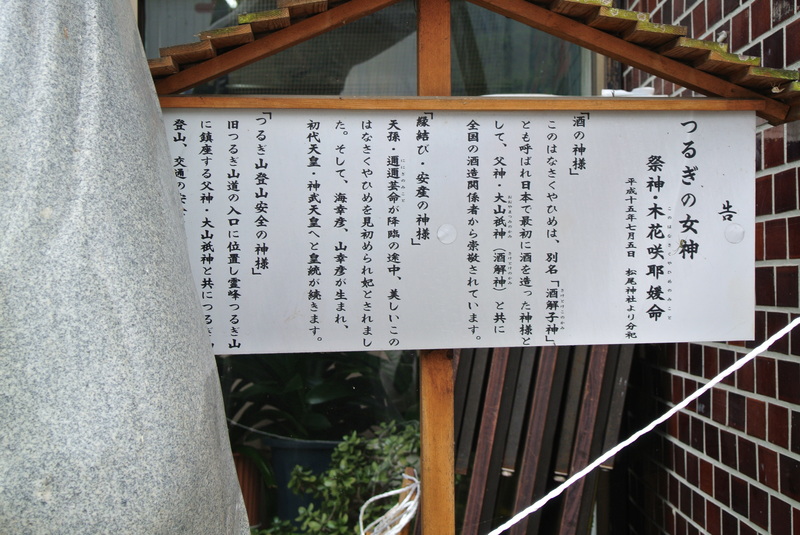 告
つるぎの女神
祭神・木花咲耶媛命
このはなさくやひめのみこと
平成十五年七月五日 松尾神社より分祀
「酒の神様」
このはなさくやひめは、別名「酒解子神」
さけとけこのかみ
とも呼ばれ日本で最初に酒を造った神様と
して、父神・大山祇神（酒解神）と共に
おおやまつみのかみ さけとけのかみ
全国の酒造関係者から崇敬されています。
「縁結び・安産の神様」
天孫・邇邇芸命が降臨の途中、美しいこの
ににぎのみこと
はなさくやひめを見初められ妃とされまし
た。そして、海幸彦、山幸彦が生まれ、
初代天皇・神武天皇へと皇統が続きます。
「つるぎ山登山安全の神様」
旧つるぎ山道の入口に位置し霊峰つるぎ山
に鎮座する父神・大山祇神と共につるぎ
登山、交通の安